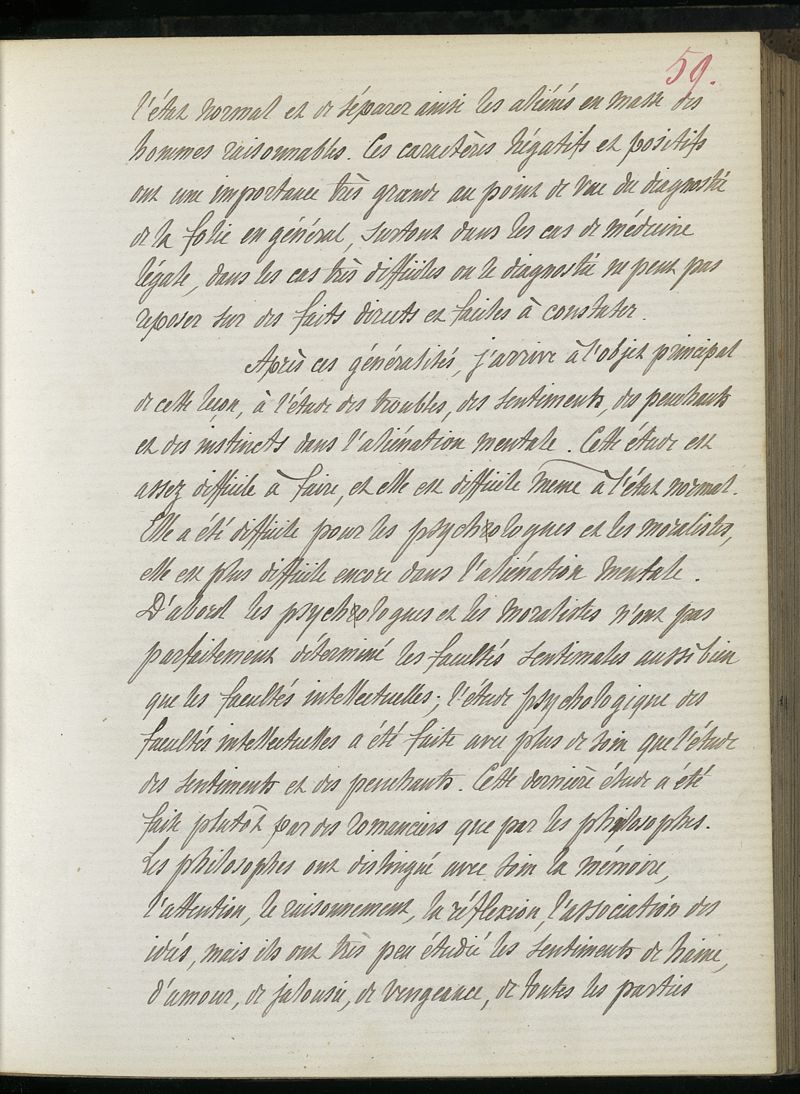 59.
l'état normal et de séparer ainsi les aliénés en masse des
hommes raisonnables. Ces caractères négatifs et positifs
ont une importance très grande au point de vue du diagnostic
de la folie en général, surtout dans les cas de médecine
légale, dans les cas très difficiles ou le diagnostic ne peut pas
reposer sur des faits directs et faciles à constater.
Après ces généralités, j'arrive à l'objet principal
de cette leçon, à l'étude des troubles, des sentiments, des penchants
et des instincts dans l'aliénation mentale. Cette étude est
assez difficile à faire, et elle est difficile même à l'état normal.
Elle a été difficile pour les psychologues et les moralistes,
elle est plus difficile encore dans l'aliénation mentale.
D'abord les psychologues et les moralistes n'ont pas
parfaitement déterminé les facultés sentimales aussi bien
que les facultés intellectuelles; l'étude psychologique des
facultés intellectuelles a été faite avec plus de soin que l'étude
des sentiments et des penchants. Cette dernière étude a été
faite plutôt par des romanciers que par les philosophes.
Les philosophes ont distingué avec soin la mémoire,
l'attention, le raisonnement, la réflexion, l'association des
idées, mais ils ont très peu étudié les sentiments de haine,
d'amour, de jalousie, de vengeance, de toutes les parties